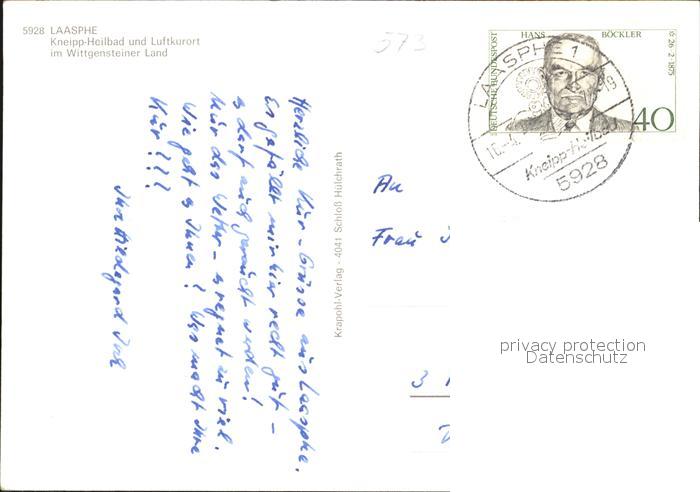 5928 LAASPHE
Kneipp-Heilbad und Luftkurort
im Wittgensteiner Land
573
DEUTSCHE BUNDESPOST
HANS BÖCKLER
✩ 26·2·1875
40
LAASPHE 1
-19
10.-4.
Kneipp-Heilbad
5928
Herzliche Kur-Grüsse aus Laasphe.
Es gefällt mir hier recht gut –
es darf auch geraucht werden!
Nur das Wetter – es regnet zu viel.
Wie geht es Ihnen? Was macht Ihre
Kur???
Ihre Hildegard
Krapohl-Verlag - 4041 Schloß Hülchrath
An
Frau
3
privacy protection
Datenschutz